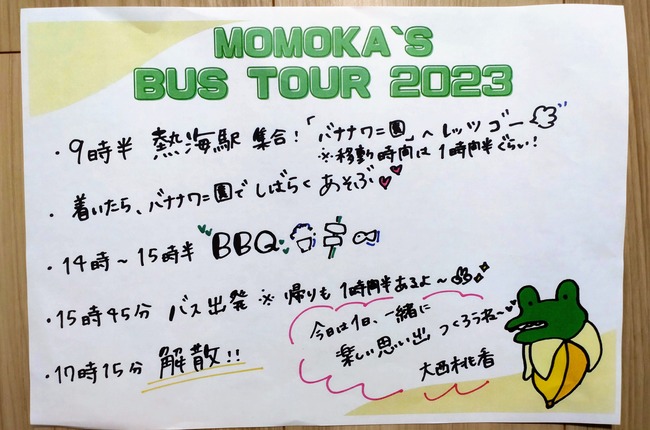 MOMOKA`S
BUS TOUR 2023
・9時半 熱海駅 集合!「バナナワニ園」へレッツゴー
※移動時間は1時間半ぐらい!
・着いたら、バナナワニ園でしばらく あそぶ♥♥
・14時〜15時半 BBQ
・15時45分 バス出発 ※帰りも1時間半あるよ〜
・17時15分 解散!!
今日は1日、一緒に
楽しい思い出 つくろうね〜♥
大西桃香